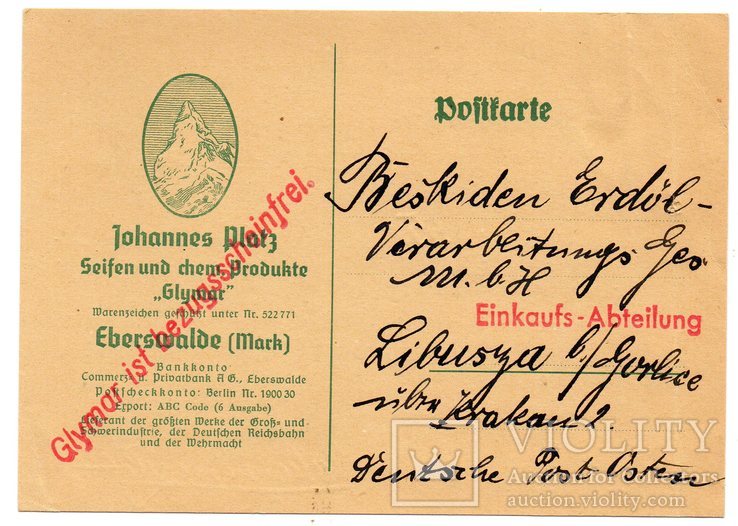 Johannes Platz
Seifen und chem. Produkte
„Glymar“
Warenzeichen geschützt unter Nr. 522771
Eberswalde (Mark)
Bankkonto
Commerz- u. Privatbank A G., Eberswalde
Postscheckkonto: Berlin Nr. 190030
Export: ABC Code (6 Ausgabe)
Lieferant der größten Werke der Groß- und
Schwerindustrie, der Deutschen Reichsbahn
und der Wehrmacht
Glymar ist bezugsscheinfrei.
Postkarte
Beskiden Erdöl-
Verarbeitungs Ges
M. b. H
Einkaufs-Abteilung
Libusza b/Gorlice
über Krakau 2.
Deutsche Post Osten
VIOLITY
Auction for collectors
auction.violity.com